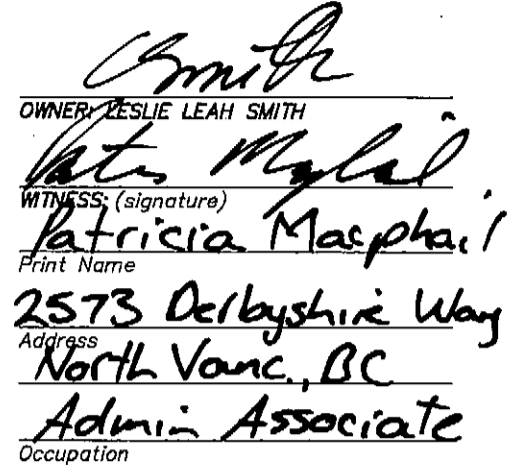 Smith
OWNER: LESLIE LEAH SMITH
WITNESS: (signature)
Patricia Macphail
Print Name
2573 Derbyshire Way
Address
North Vanc., BC
Admin Associate
Occupation